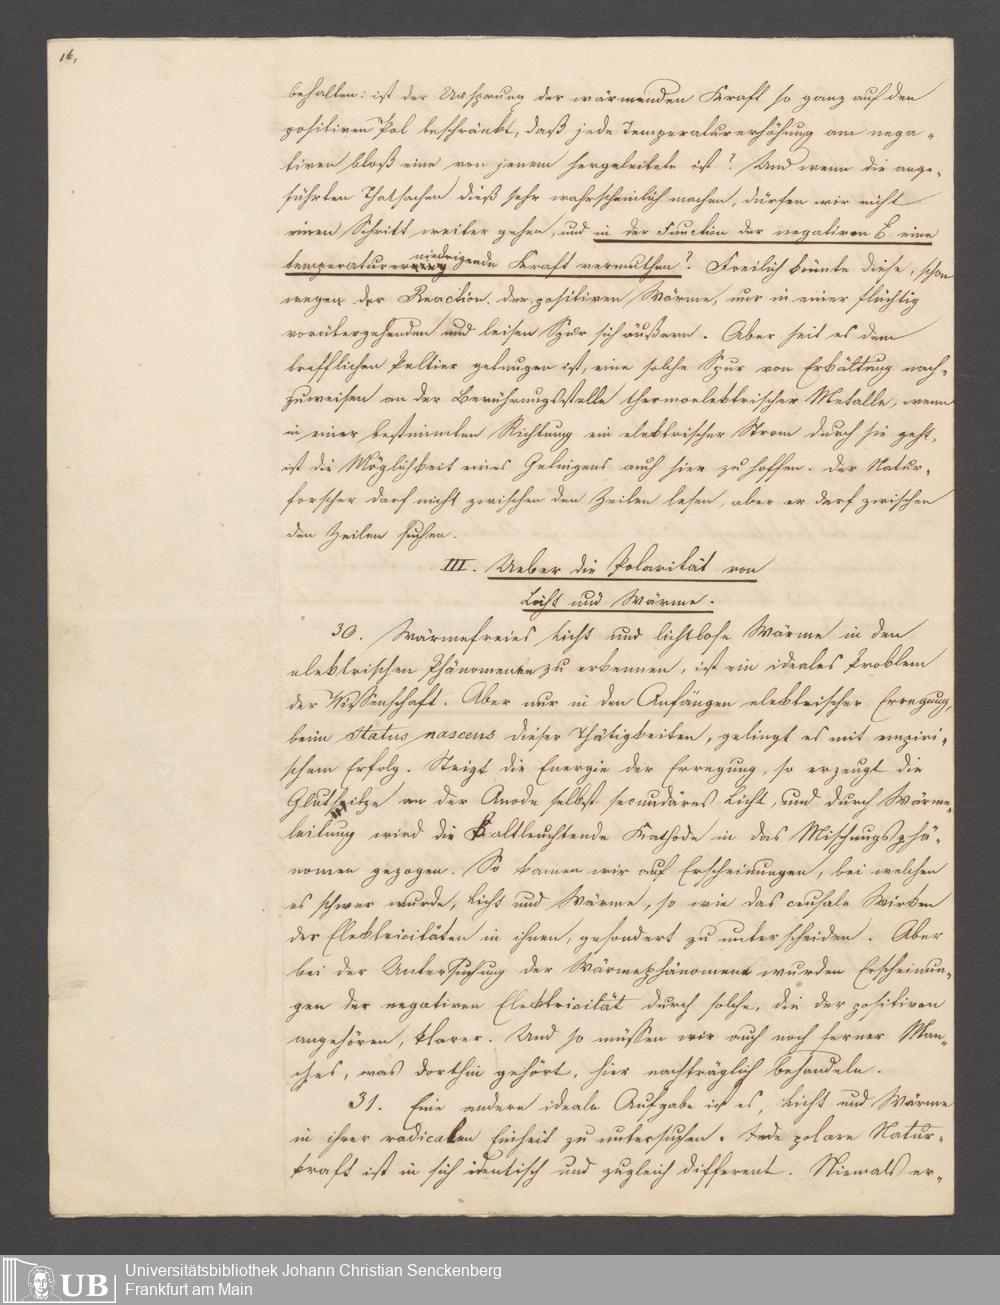 16,
behalten: ist der Ursprung der wärmenden Kraft so ganz auf den
positiven Pol beschränkt, daß jede Temperaturerhöhung am nega-
tiven bloß eine von jenem hergeleitete ist? Und wenn die ange-
führten Thatsachen dieß sehr wahrscheinlich machen, dürfen wir nicht
einen Schritt weiter gehen, und in der Function der negativen E eine
temperaturerniedrigende Kraft vermuthen? Freilich könnte diese, schon
wegen der Reaction der positiven Wärme, nur in einer flüchtig
vorübergehenden und leisen Spur sich äußern. Aber seit es dem
trefflichen Peltier gelungen ist, eine solche Spur von Erkältung nach-
zuweisen an der Berührungsstelle thermoelektrischer Metalle, wenn
in einer bestimmten Richtung ein elektrischer Strom durch sie geht,
ist die Möglichkeit eines Gelingens auch hier zu hoffen. Der Natur-
forscher darf nicht zwischen den Zeilen lesen, aber er darf zwischen
den Zeilen suchen.
III. Ueber die Polarität von
Licht und Wärme.
30. Wärmefreies Licht und lichtlose Wärme in den
elektrischen Phänomenen zu erkennen, ist ein ideales Problem
der Wissenschaft. Aber nur in den Anfängen elektrischer Erregung,
beim status nascens dieser Thätigkeiten, gelingt es mit empiri-
schem Erfolg. Steigt die Energie der Erregung, so erzeugt die
Gluthitze an der Anode selbst secundäres Licht, und durch Wärme-
leitung wird die kaltleuchtende Kathode in das Mischungsphä-
nomen gezogen. So kamen wir auf Erscheinungen, bei welchen
es schwer wurde, Licht und Wärme, so wie das causale Wirken
der Elektricitäten in ihnen, gesondert zu unterscheiden. Aber
bei der Untersuchung der Wärmephänomene wurden Erscheinun-
gen der negativen Elektricität durch solche, die der positiven
angehören, klarer. Und so müssen wir auch noch ferner Man-
ches, was dorthin gehört, hier nachträglich behandeln.
31. Eine andere ideale Aufgabe ist es, Licht und Wärme
in ihrer radicalen Einheit zu untersuchen. Jede polare Natur-
kraft ist in sich identisch und zugleich different. Niemals er-
UB
Universitätsbibliothek Johann Christian Senckenberg
Frankfurt am Main